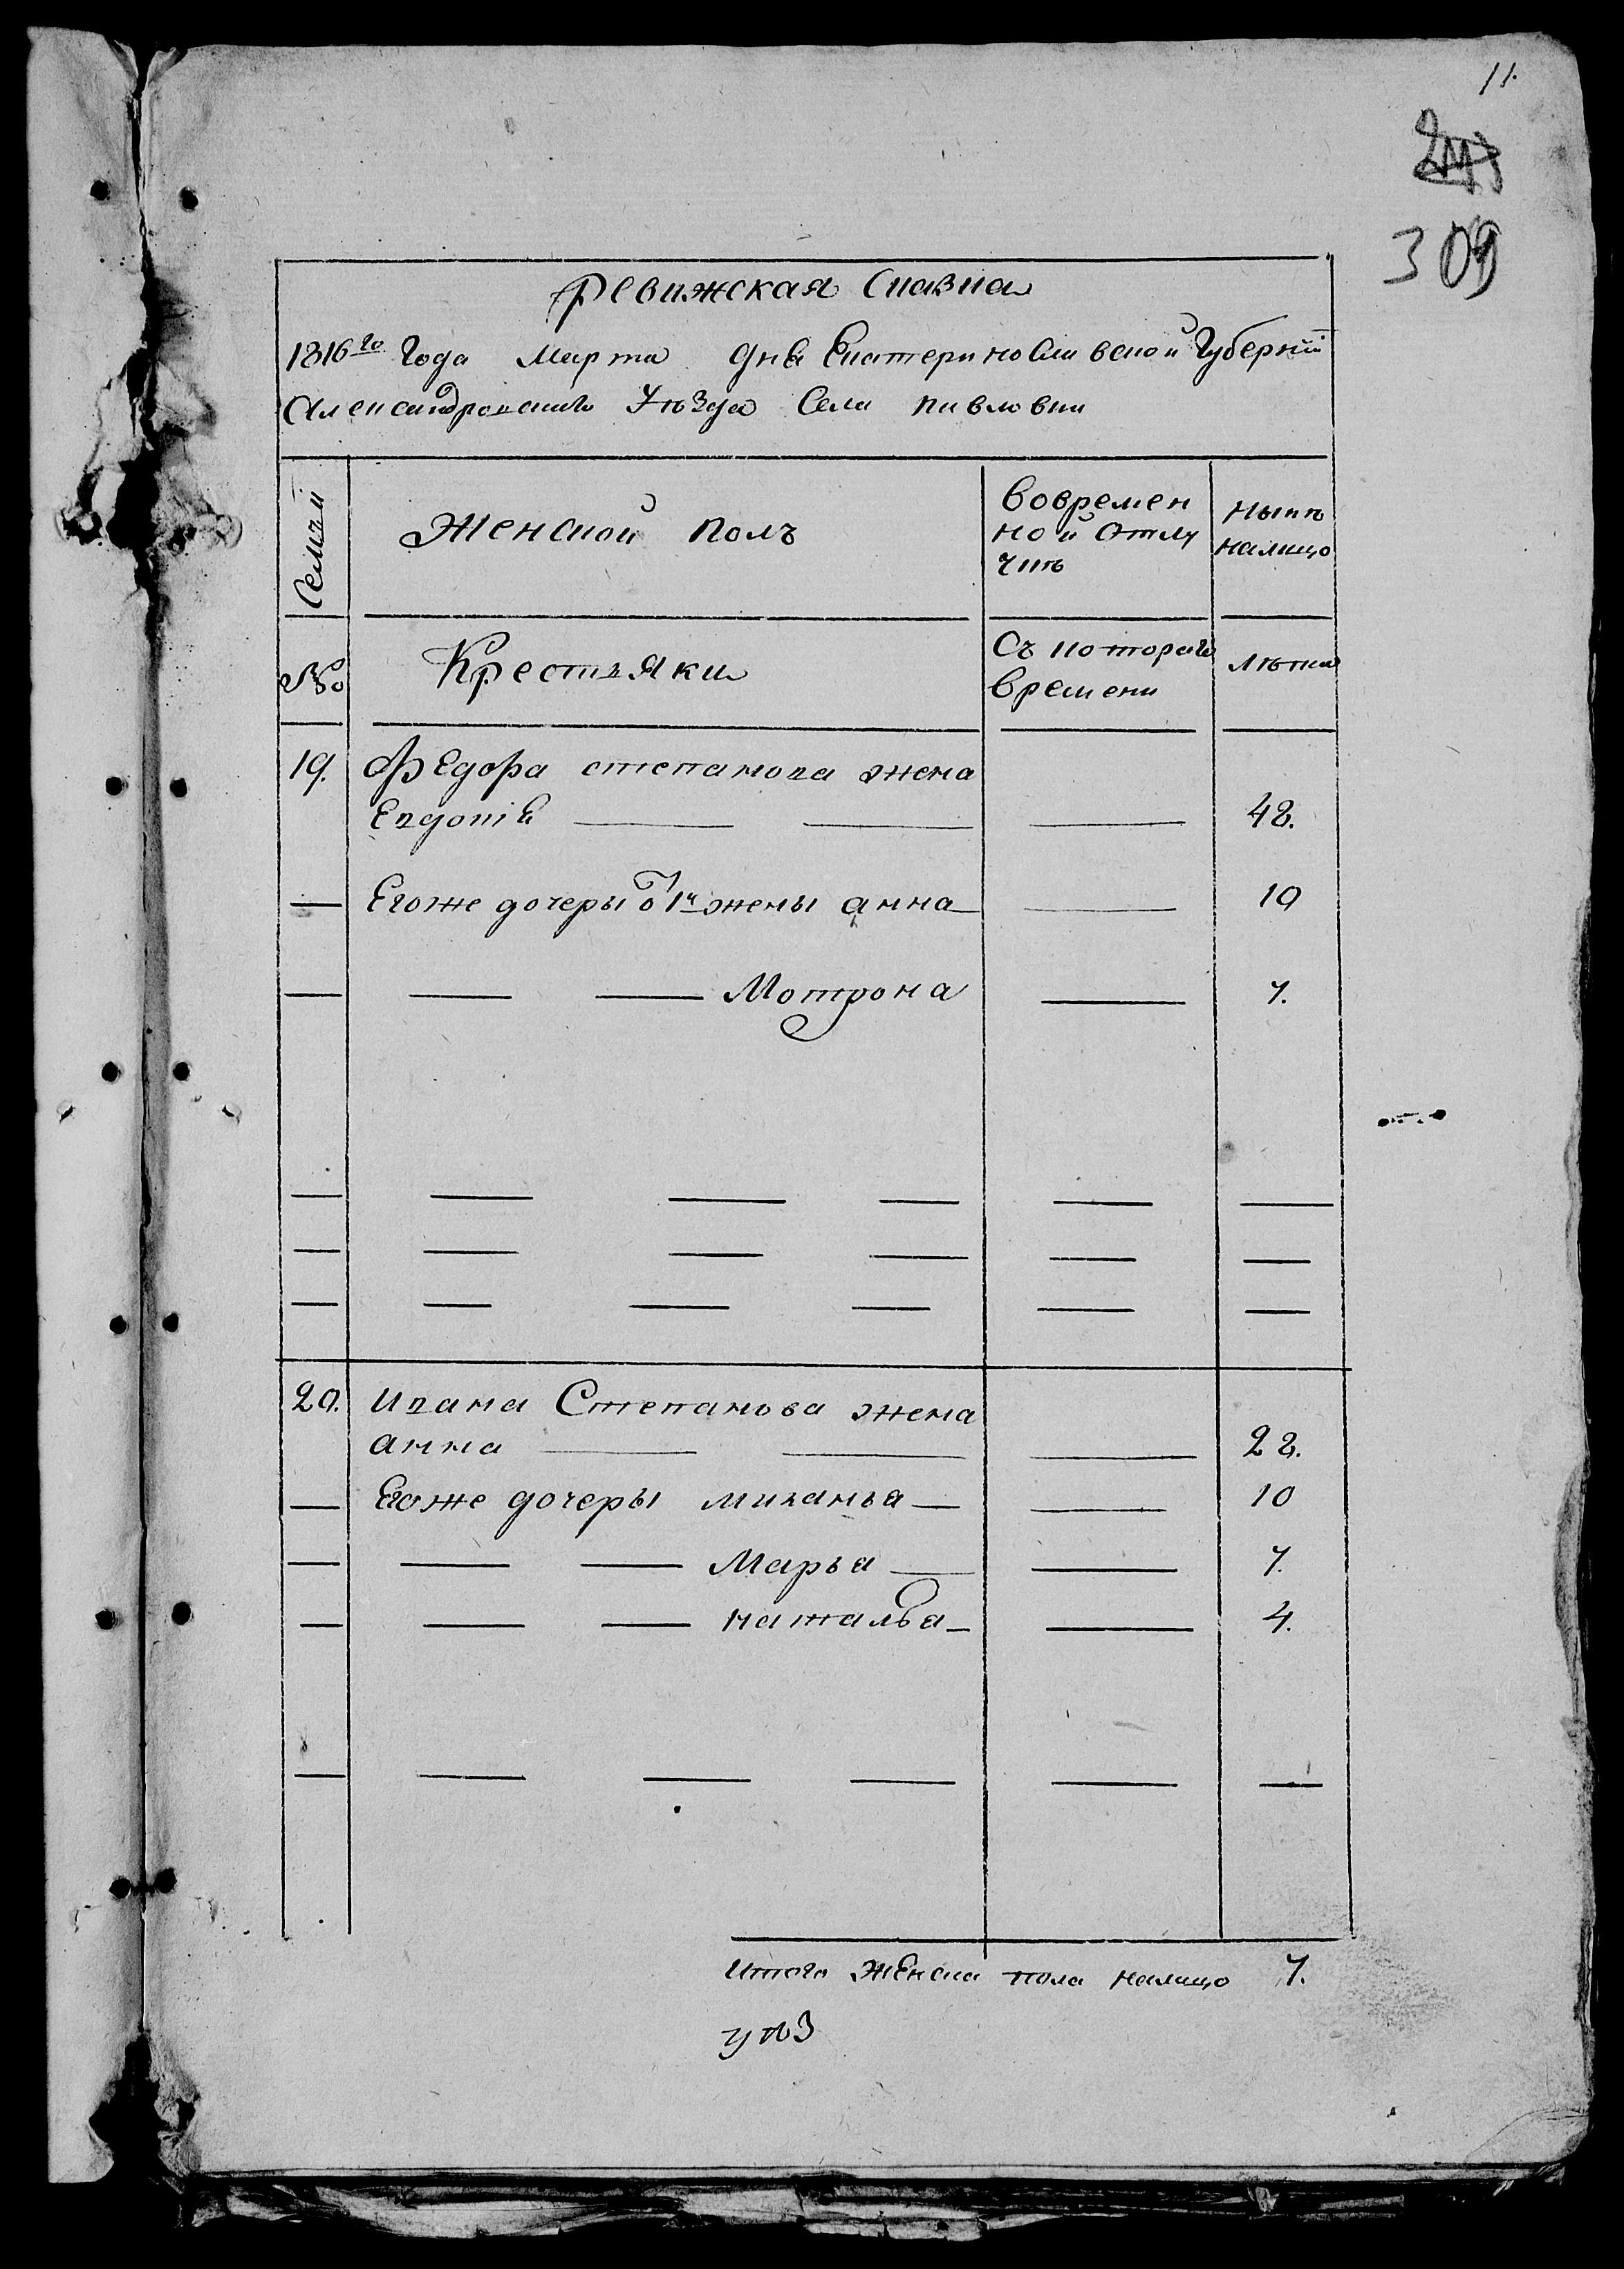 11.
309
Ревижская Сказка
1816го Года Марта дня Екатеринославской Губернїи
Александровскаго Уѣзда Села Павловки
Семьи
Женской полъ
вовремен
ной отлу
чкѣ
нынѣ
налицо
№
Крестьянки
Съ котораго
времени
лѣта
19. Федора степанова жена
Евдокія 48.
— Егоже дочеры от 1й жены анна — 10
— — — Мотрона — 7.
— — — — — —
— — — — — —
— — — — — —
20. Ивана Степанова жена
анна 28.
— Егоже дочеры миланья — — 10
— — — Марья — — 7.
— — — наталья — — 4.
— — — — — —
Итого Женска пола налицо 7.